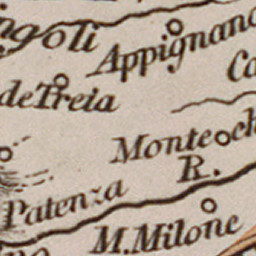 ngoli
Appignano
Ca
de Treia
Monte ch
R.
Patenza
M. Milone